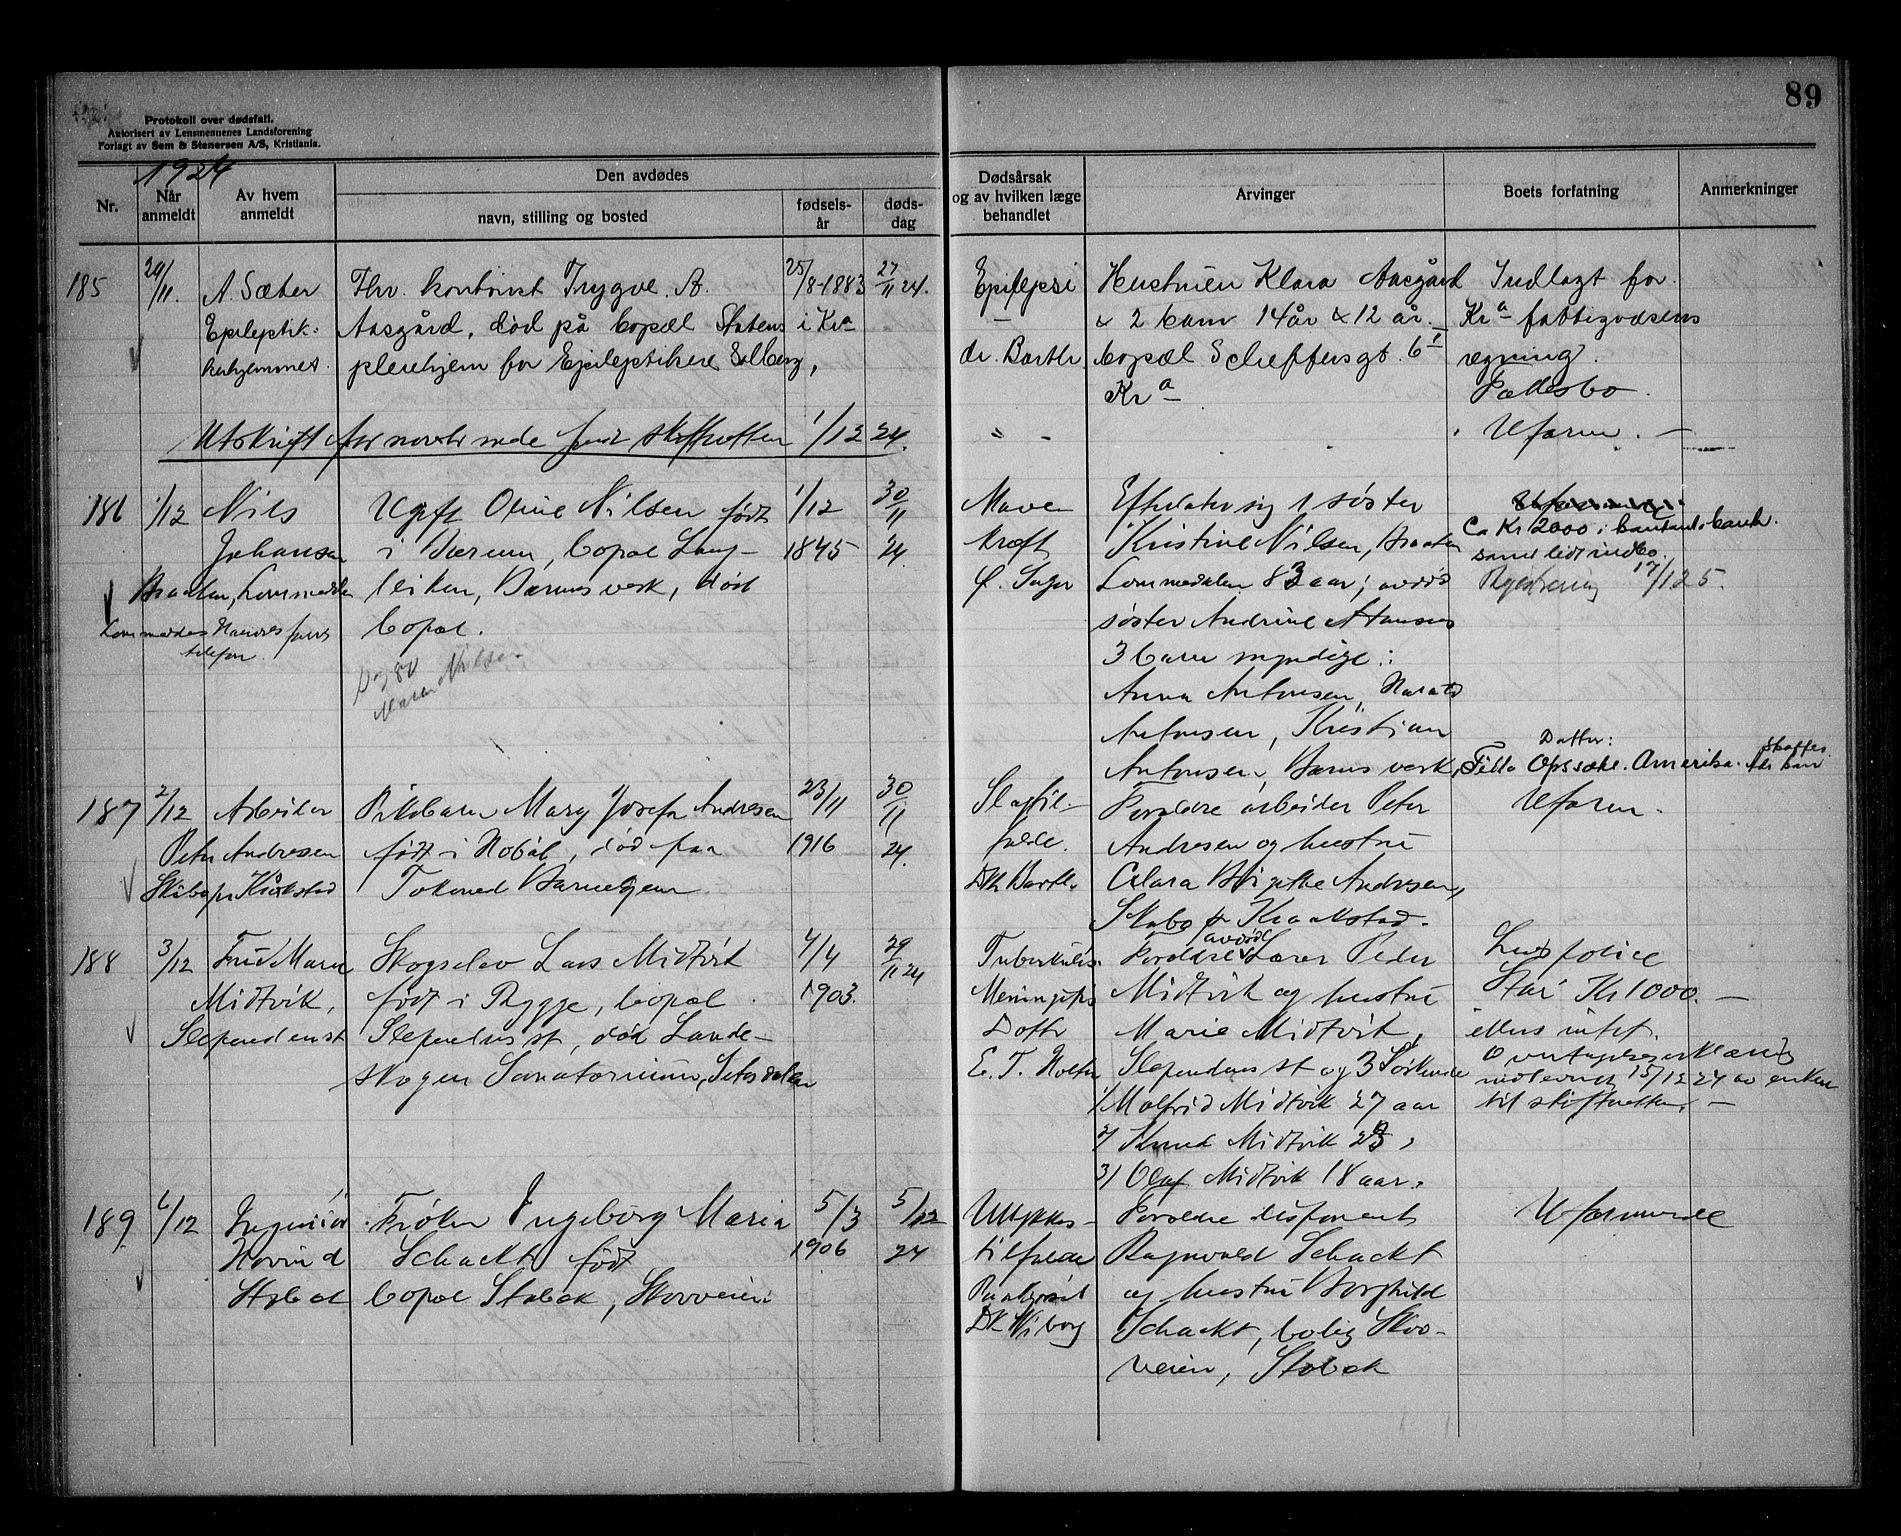 89
Protokoll over dødsfall.
Autorisert av Lensmennenes Landsforening
Forlagt av Sem & Stenersen A/S, Kristiania.
1924
Nr.
Når anmeldt
Av hvem anmeldt
Den avdødes
navn, stilling og bosted
fødselsår
dødsdag
Dødsårsak og av hvilken læge behandlet
Arvinger
Boets forfatning
Anmerkninger
185
29/11.
A. Sæter
Epileptik-
erhjemmet.
Fhv. kontorist Trygve A.
Aasgård, død på bopæl Statens
pleiehjem for Epileptikere Solberg,
25/8-1883
i Kra
27/11 24.
Epilepsi
dr. Barth
Hustruen Klara Aasgård
& 2 barn 14 år & 12 år.
bopæl Scheffersgt. 6
Kra
Indlagt for
Kra fattigvæsens
regning.
Fællesbo.
Uform.
Utskrift for november sendt skifteretten 1/12 24.
186
1/12
Nils
Johansen
Braaten, Lommedalen
Lommedalens telefon.
Ugift Oline Nilsen født
i Bærum, bopæl Lang-
leiken, Bærums verk, død
bopæl.
Maren Nilsen
1/12
1845
30/11
24.
Mave
kræft
Efterlater sig 1 søster
Kristine Nilsen, Braaten
Lommedalen 83 aar; avdøde
søster Andrine Antonsens
3 barn myndige:
Anna Antonsen, Harald
Antonsen, Kristian
Antonsen, Bærums verk,
Ca Kr 2000 i bankbank.
samt lidt indbo.
Registrering 17/1 25.
Datter:
Amerika.
187
2/12
Arbeider
Peter Andresen
Skibo pr Kråkstad
Pikebarn Mary Josefa Andresen
født i Hobøl, død paa
Tokerud Barnehjem
23/11
1916
30/11
24.
Slagtil-
fælde.
Dr. Barth.
Forældre arbeider Peter
Andresen og hustru
Clara Birgitte Andresen,
Skabo pr Kraakstad.
Uform.
188
3/12
Fru Marie
Midtvik,
Slependen st
Skogselev Lars Midtvik
født i Rygge, bopæl
Slependen st, død Lande-
skogen Sanatorium, Setesdalen
4/4
1903.
29/11 24
Tuberkuløs
Meningitis
Doktor
E. T. Holtn
avdøde
Forældre Lærer Peder
Midtvik og hustru
Marie Midtvik,
Slependens st og 3 Søskende
1/ Malfrid Midtvik 27 aar
2/ Knud Midtvik
3/ Olaf Midtvik 18 aar.
Livspolice
Stor Kr 1000.
ellers intet.
Overtagelseserklæring
indleveret 15/12 24 av enken
til skifteretten.
189
6/12
Ingeniør
Hovind
Stabæk
Frøken Ingeborg Maria
Schackt født
bopæl Stabæk, Skovveien
5/3
1906
5/12
24
Ulykkes-
tilfælde
Dr. Wiborg
Forældre disponent
Ragnvald Schackt
og hustru Borghild
Schackt, bolig Skov-
veien, Stabæk
Uformuende